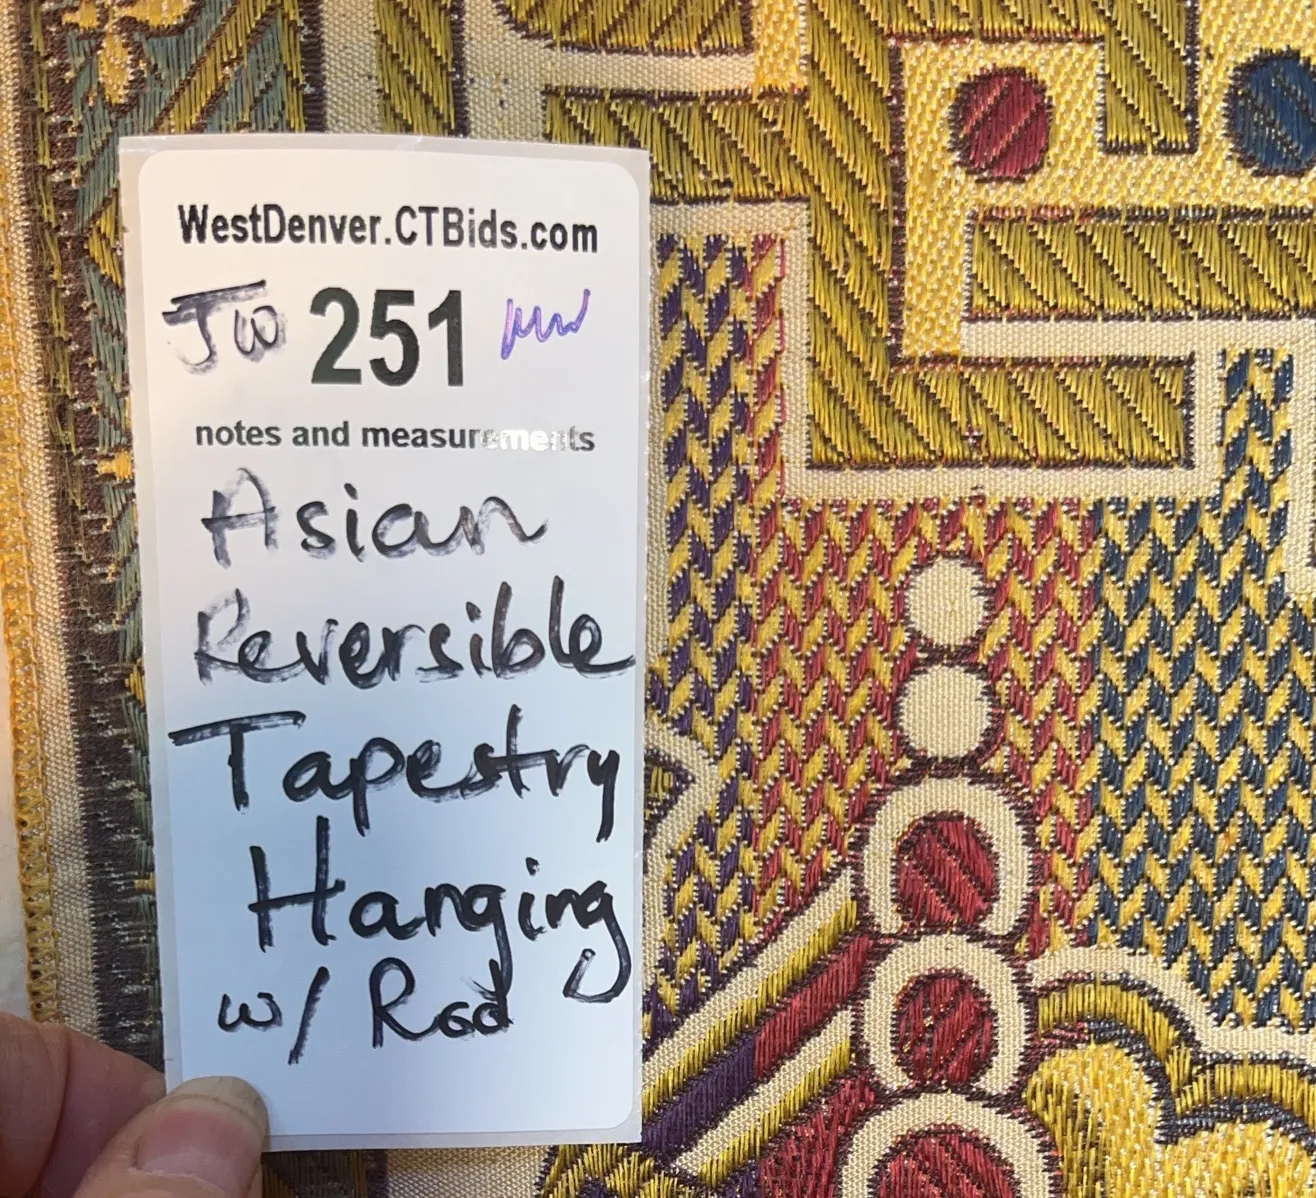 WestDenver.CTBids.com
JW 251 MW
notes and measurements
Asian
Reversible
Tapestry
Hanging
w/ Rod